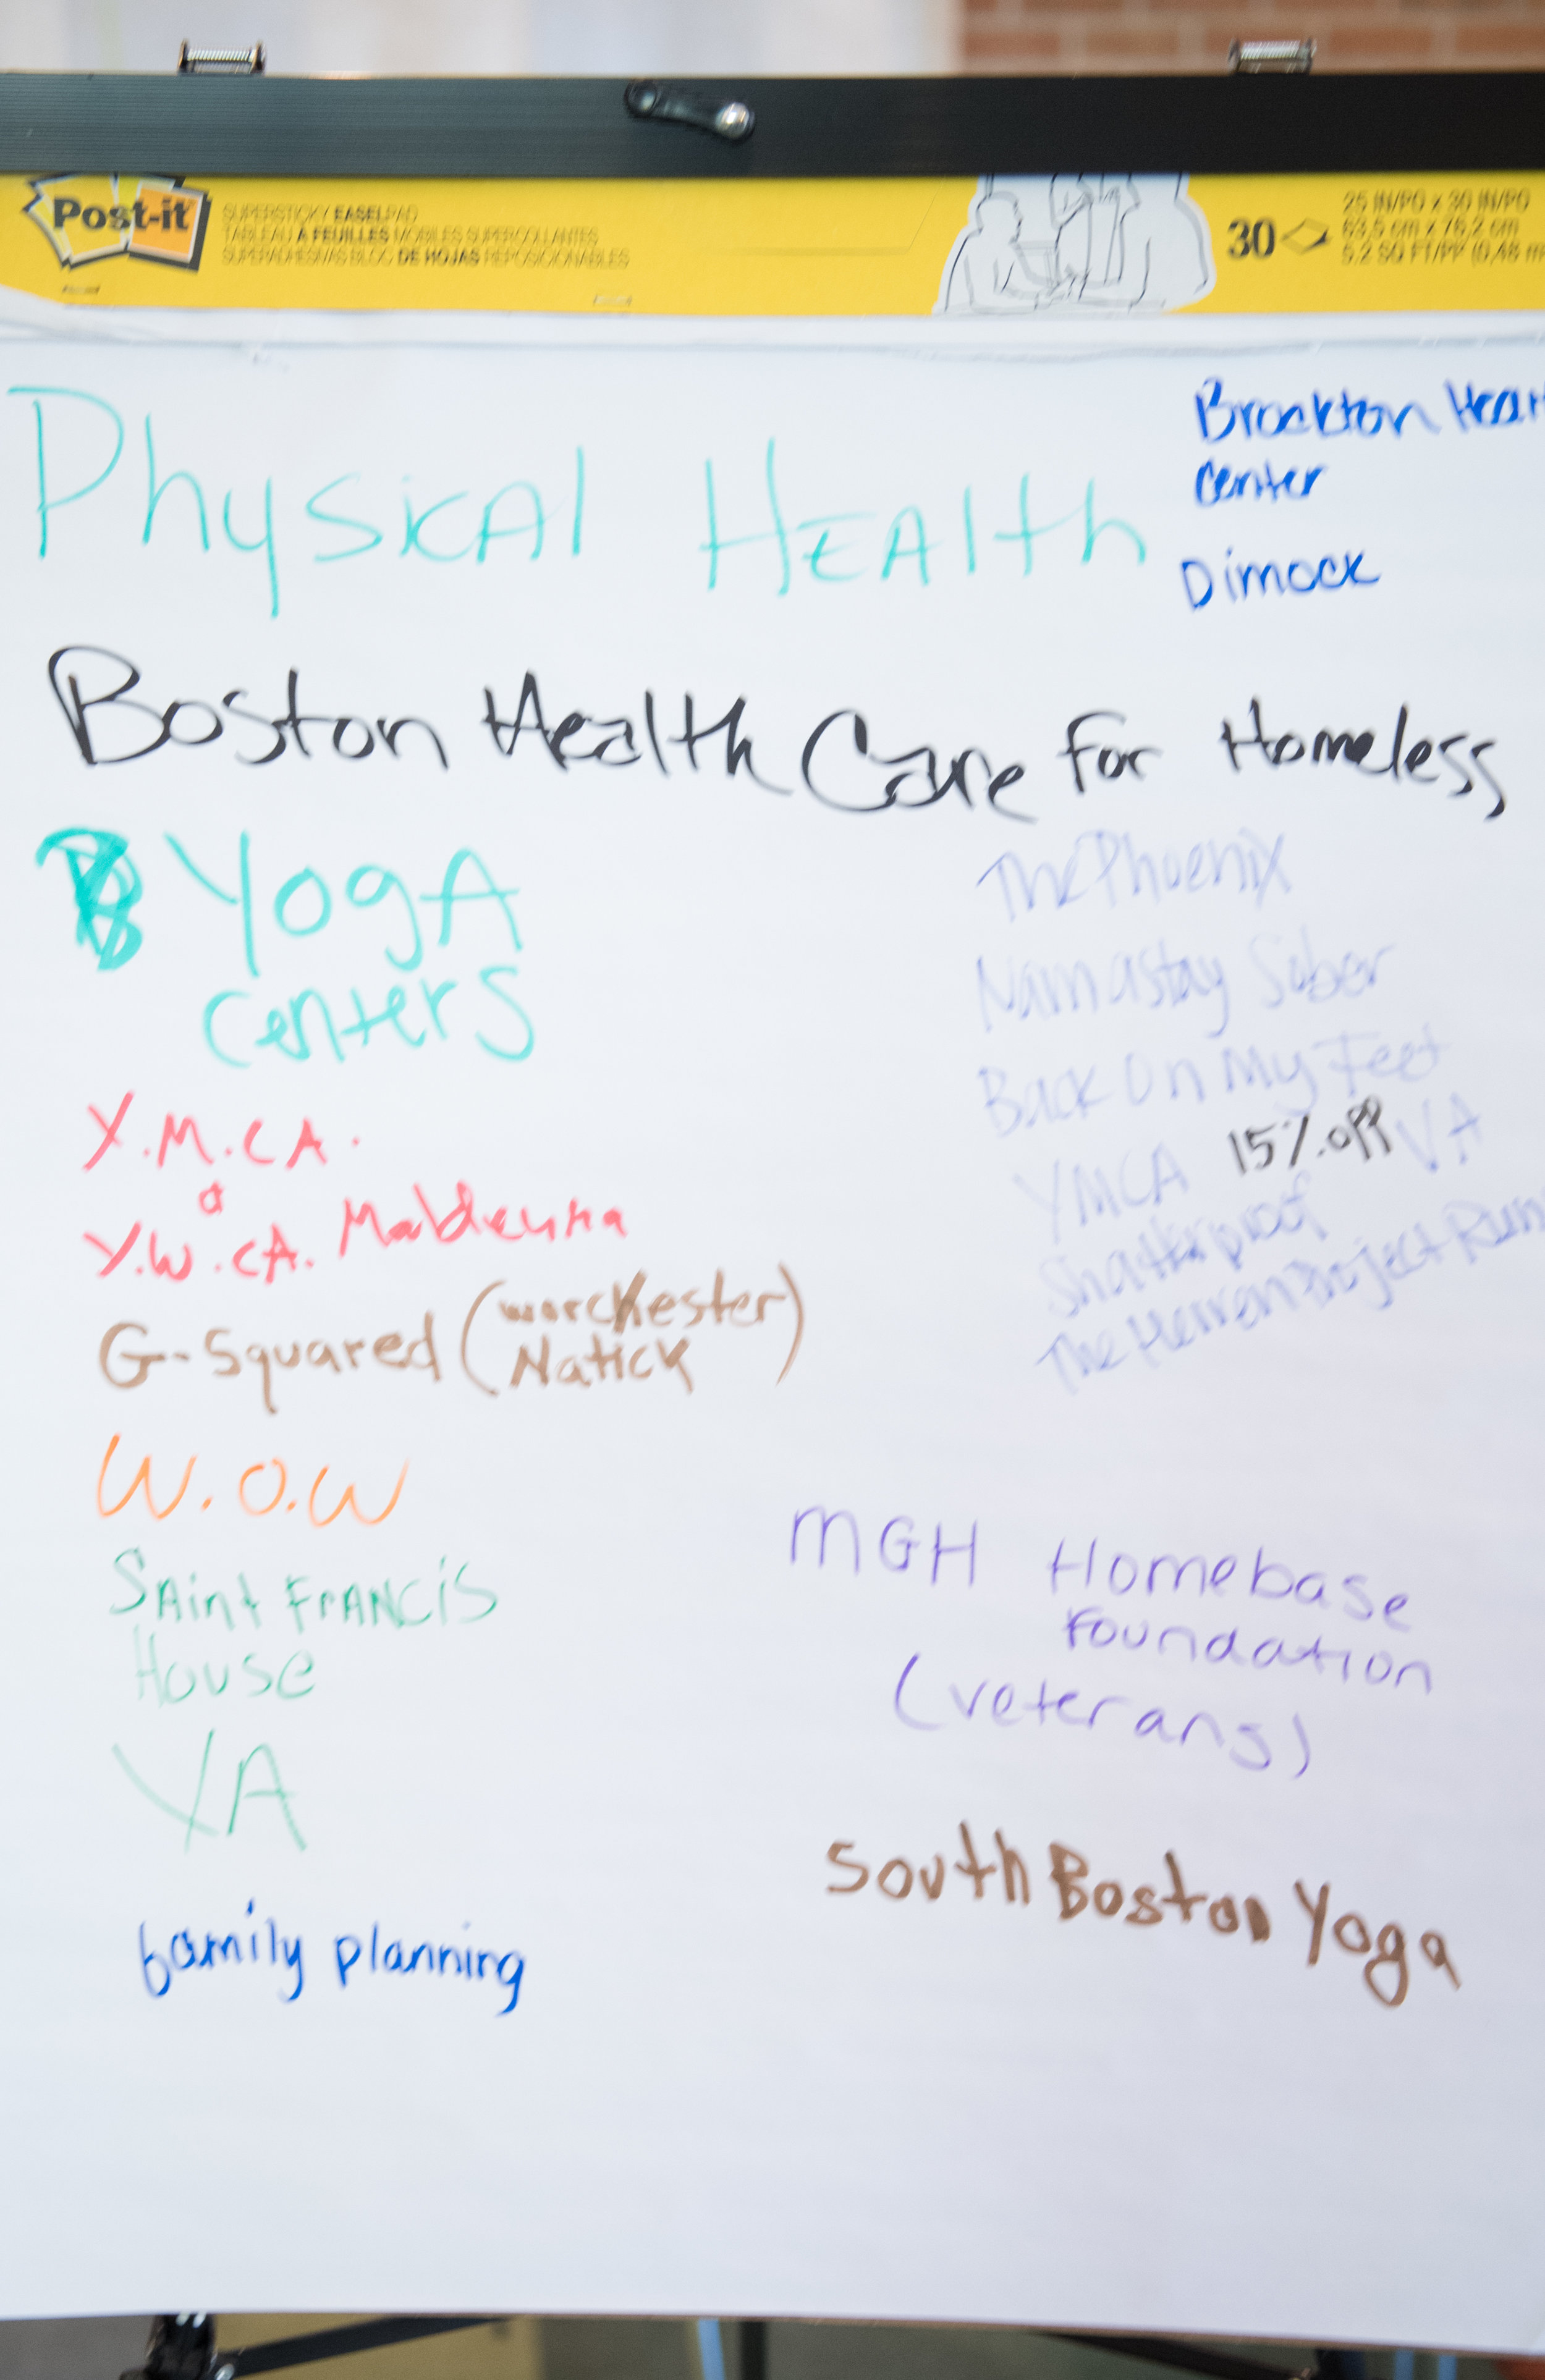 Post-it
SUPERSTICKY EASEL PAD
TABLEAU À FEUILLES MOBILES SUPERCOLLANTES
SUPERADHESIVAS BLOC DE HOJAS REPOSICIONABLES
30
25 IN/PO x 30 IN/PO
63,5 cm x 76,2 cm
5.2 SQ FT/PP (0,48 m
Physical Health
Brockton Hear
Center
Dimock
Boston Health Care for Homeless
Yoga
Centers
Y.M.C.A.
Y.W.CA.
G-Squared (worchester
Natick)
W.O.W
Saint Francis
House
VA
family planning
The Phoenix
Namastay Sober
Back On My Feet
YMCA 15%.off VA
Shatterproof
The Herren Project Run
MGH Homebase
Foundation
(veterans)
South Boston Yoga